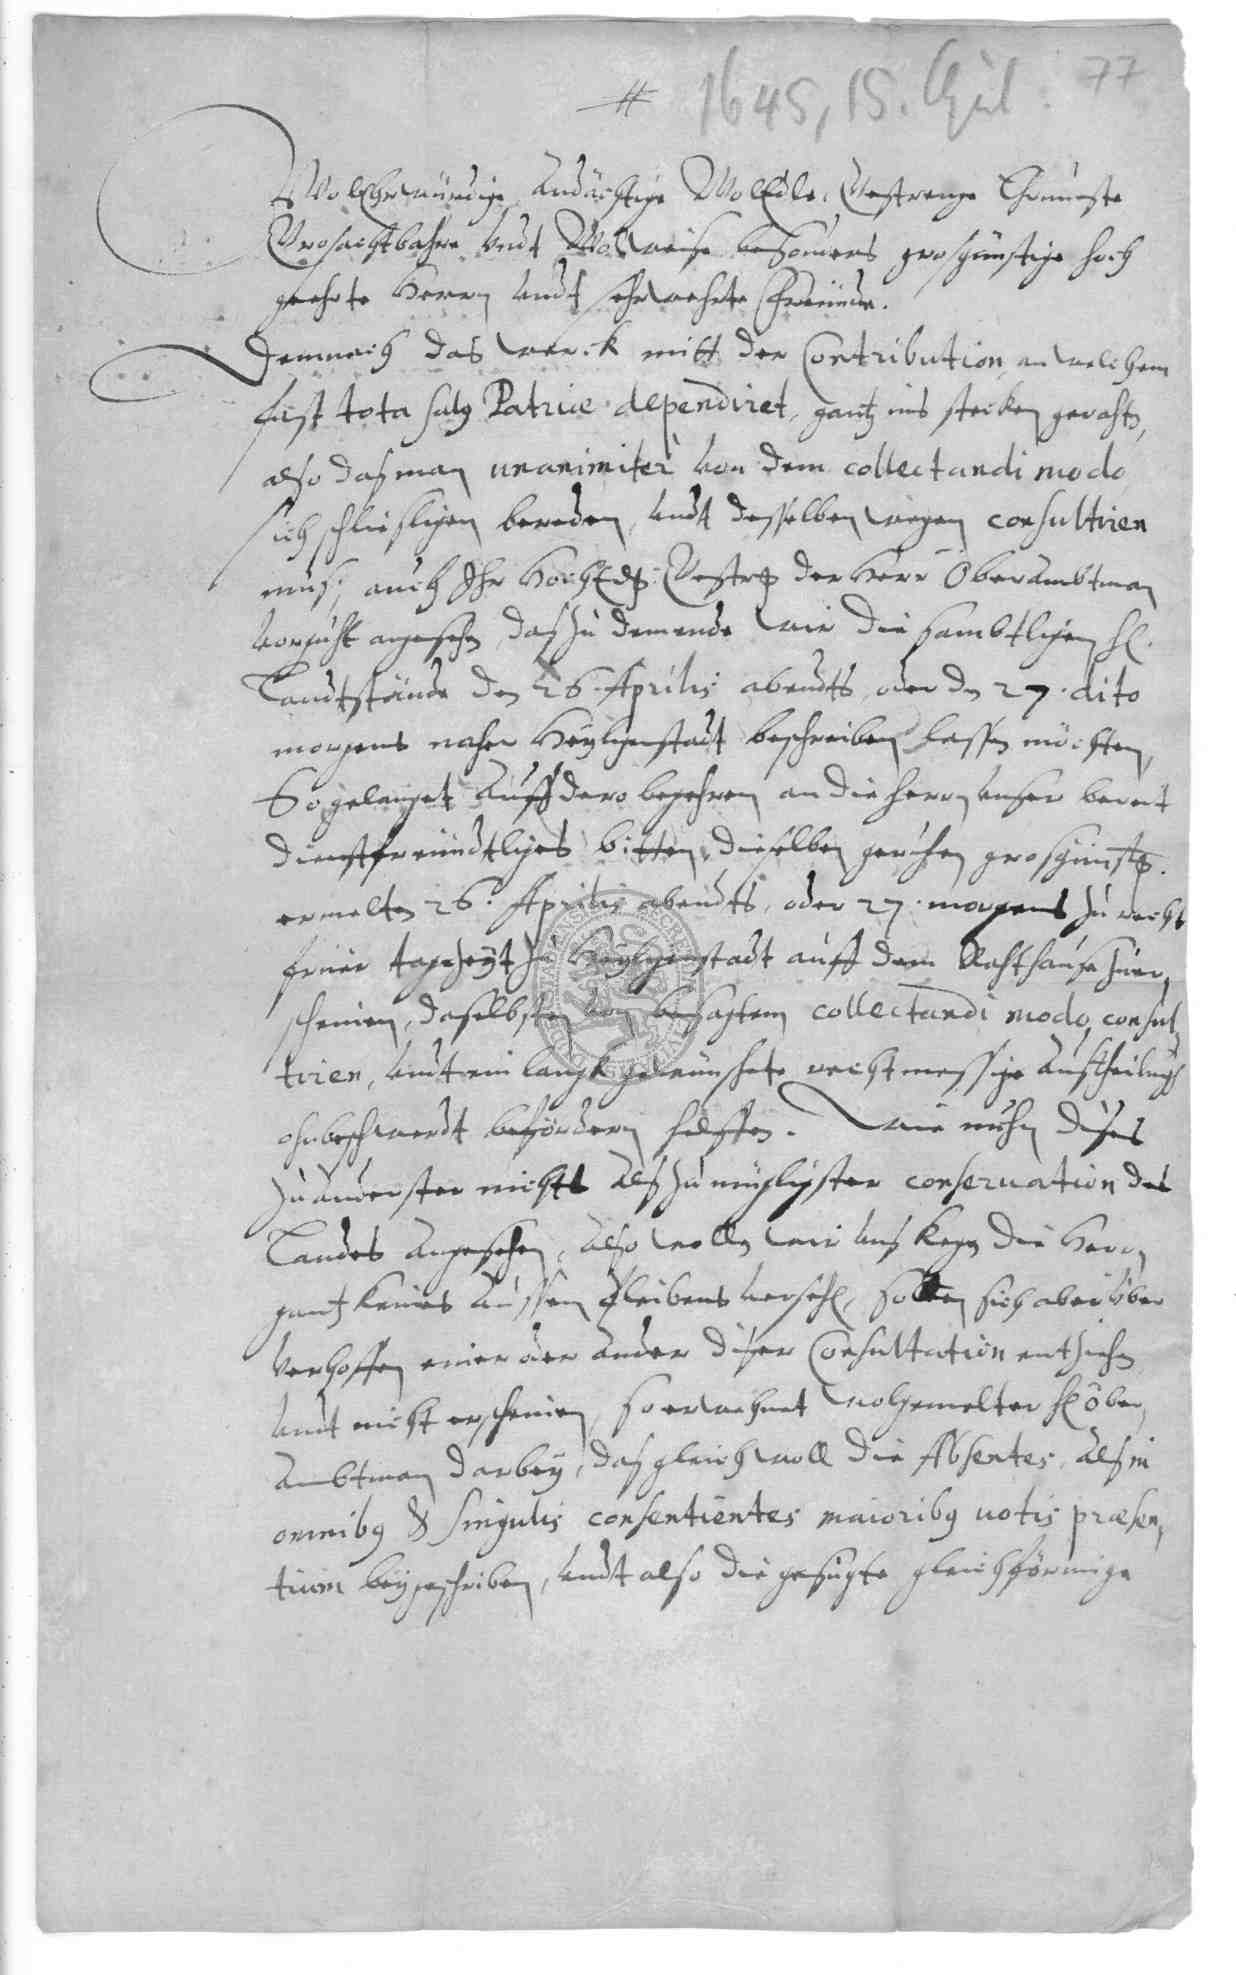 77
1645, 15. April
WolEhrwürdige, Andächtige WolEdle, Gestrenge Ehrnueste
Grosachtbahre undt Wolweise besonders grosgünstige hoch
geehrte Herrn undt sehrwehrte Freünde.
Demnach das werck mitt der Contribution, an welchem
fast tota salus Patriæ dependiret, gantz ins stecken gerahtn,
also das man unanimiter von dem collectandi modo
sich schliesligen bereden, undt desselben wegen consultiren
mus, auch Ihr HochEdg: Gestrg der Herr Oberambtman
vor guht angesehn, das zu dem ende wir die sambtligen H.
Landtstände den 26. Aprilis abendts, oder dn 27. dito
morgens naher Heyligenstadt beschreiben lassn möchten,
So gelanget auff dero begehren an die herrn unser bereit
dienstfreündtliges bitten, dieselben geruhen grosgünstg.
ermelten 26. Aprilis abendts, oder 27. morgens zu recht
früer tagzeyt zu Heyligenstadt auff dem Rahthause zuer,
scheinen, daselbsten von besagtem collectandi modo, consul,
tiren, undt ein langk gewünschete rechtmessige Austheilung
ohnbeschwerdt befördern helffen. Wie nuhn dises
zu anderster nichts als zu mügligster conseruation des
Landes angesehen, also wolln wir uns kegn die Herrn
gantz keines aussen bleibens versehn, solten sich aber über
verhoffen einer oder ander diser Consultation entziehn
undt nicht erscheinen, so erwehnet wolgemelter H Ober,
ambtman darbey, das gleichwoll die Absentes, als in
omnibus & singulis consentientes maioribus uotis præsen,
tium beygeschriben, undt also die gesugte gleichförmige